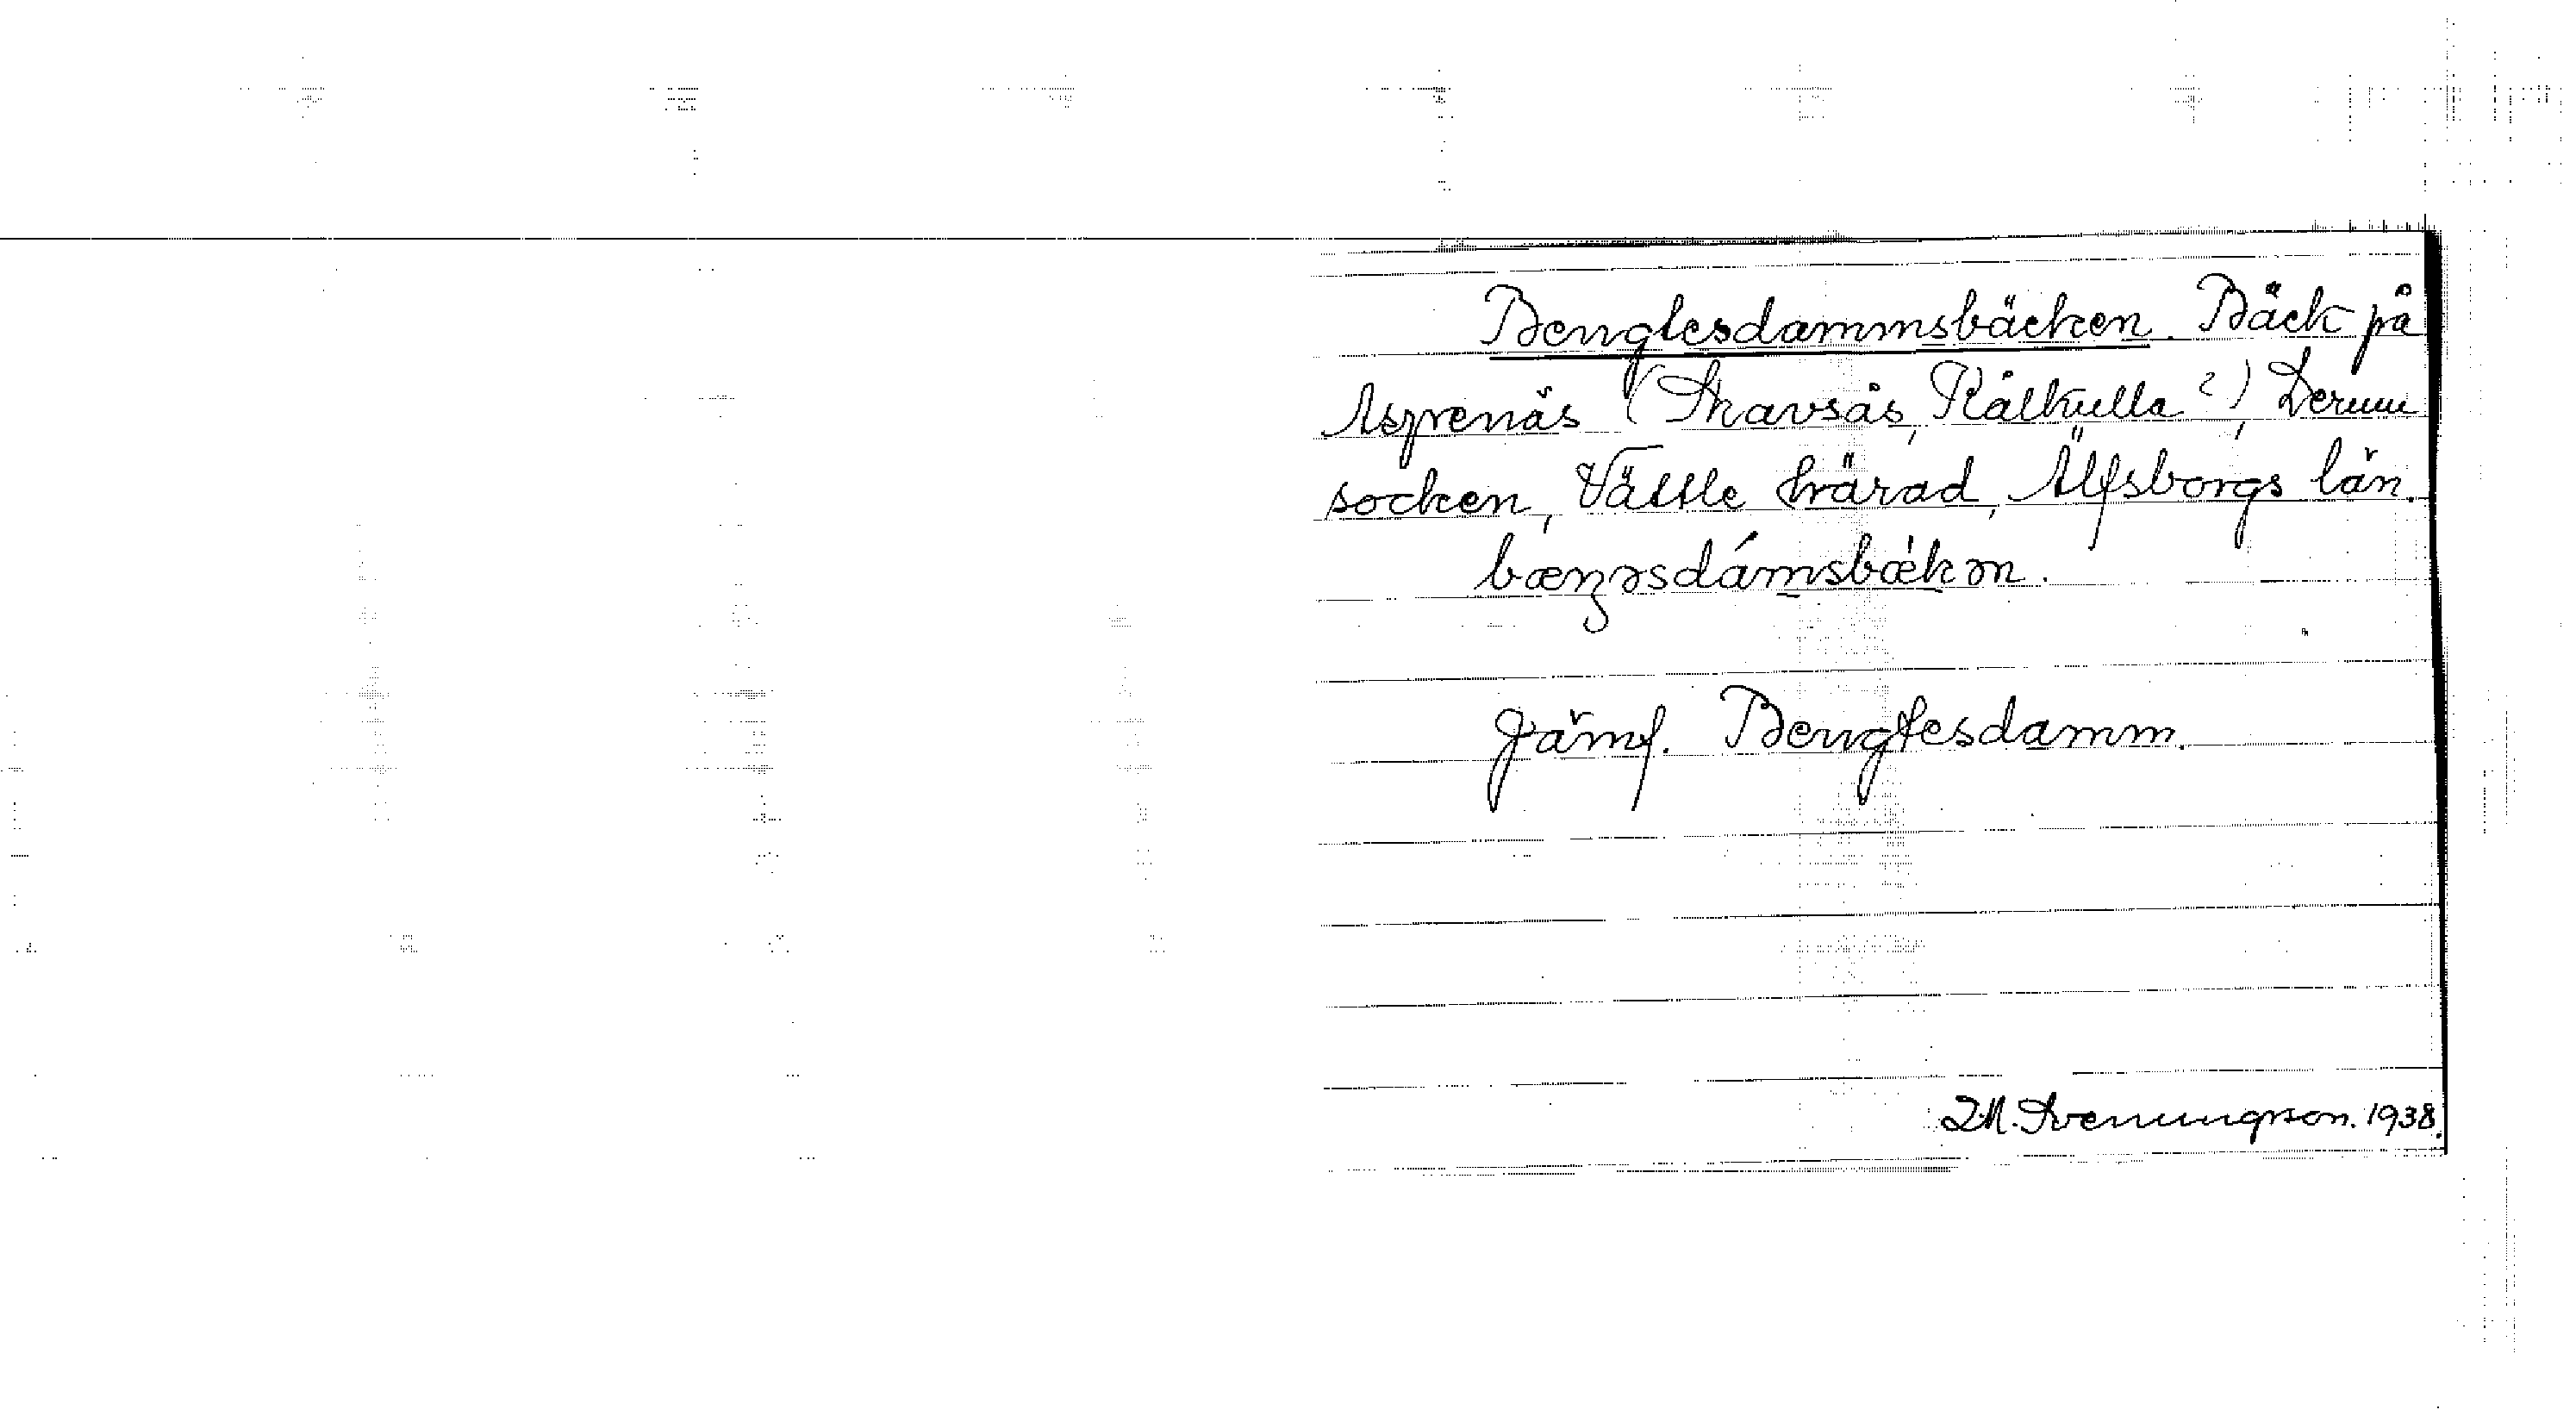 Bengtesdammsbäcken. Bäck på
Asprenäs (Skavsås, Kålkulla?), Lerum
socken, Vättle härad, Älfsborgs län.
bæŋəsdámsbǽkən.
Jämf. Bengtesdamm.
1938.